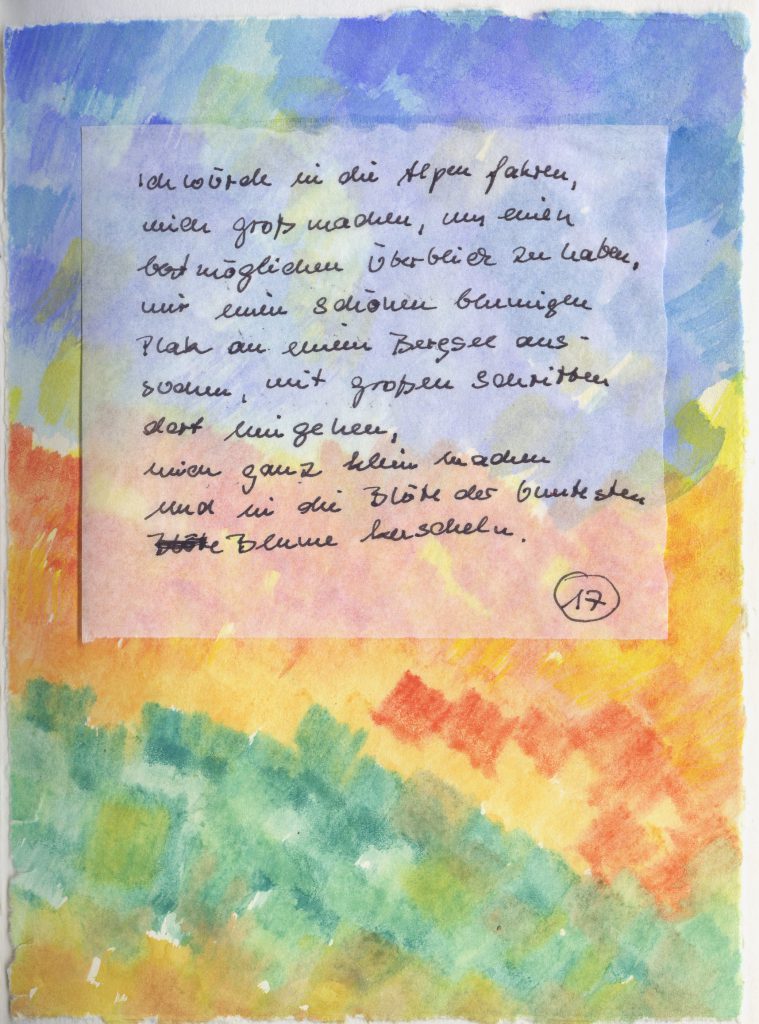 Ich würde in die Alpen fahren,
mich groß machen, um einen
bestmöglichen Überblick zu haben,
mir einen schönen blumigen
Platz an einem Bergsee aus-
suchen, mit großen Schritten
dort hingehen,
mich ganz klein machen
und in die Blüte der buntesten
Blüte Blume kuscheln.
17